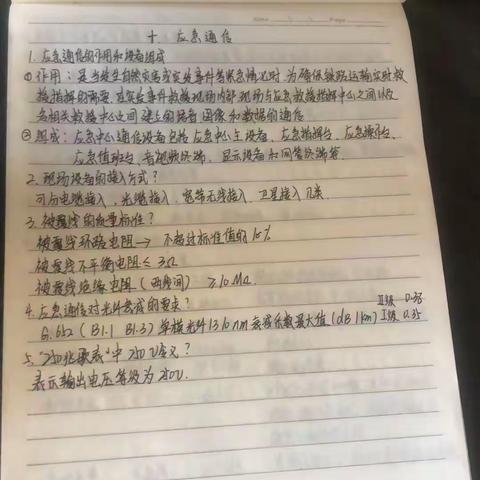 Date Page
十、应急通信
1. 应急通信的作用和设备组成
① 作用：是当发生自然灾害或突发事件等紧急情况时，为确保铁路运输实时救
援指挥的需要，在突发事件救援现场内部、现场与应急救援指挥中心之间以及
各相关救援中心之间建立的语音、图像和数据的通信
② 组成：应急中心通信设备包括应急中心主设备、应急指挥台、应急操作台、
应急值班台、音视频终端、显示设备和网管终端等。
2. 现场设备的接入方式？
可分电缆接入，光缆接入，宽带无线接入，卫星接入几类
3. 被覆线的质量标准？
被覆线环路电阻→ 不超过标准值的10%
被覆线不平衡电阻≤ 3Ω
被覆线绝缘电阻（两线间） ≥10MΩ
4. 应急通信对光纤衰减的要求？
G.652（B1.1 B1.3）单模光纤1310nm衰减系数最大值（dB/km）Ⅰ级 0.35
Ⅱ级 0.38
5. "250兆欧表"中250V含义？
表示输出电压等级为250V.